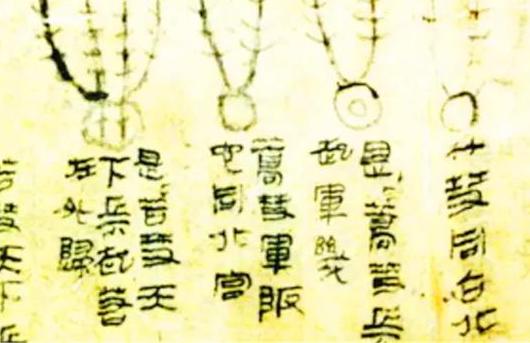 竹彗同占北
是蒿彗兵
起軍幾
蒿彗軍阪
它同北宮
是苫彗天
下兵起若
在外歸
苫彗天下兵